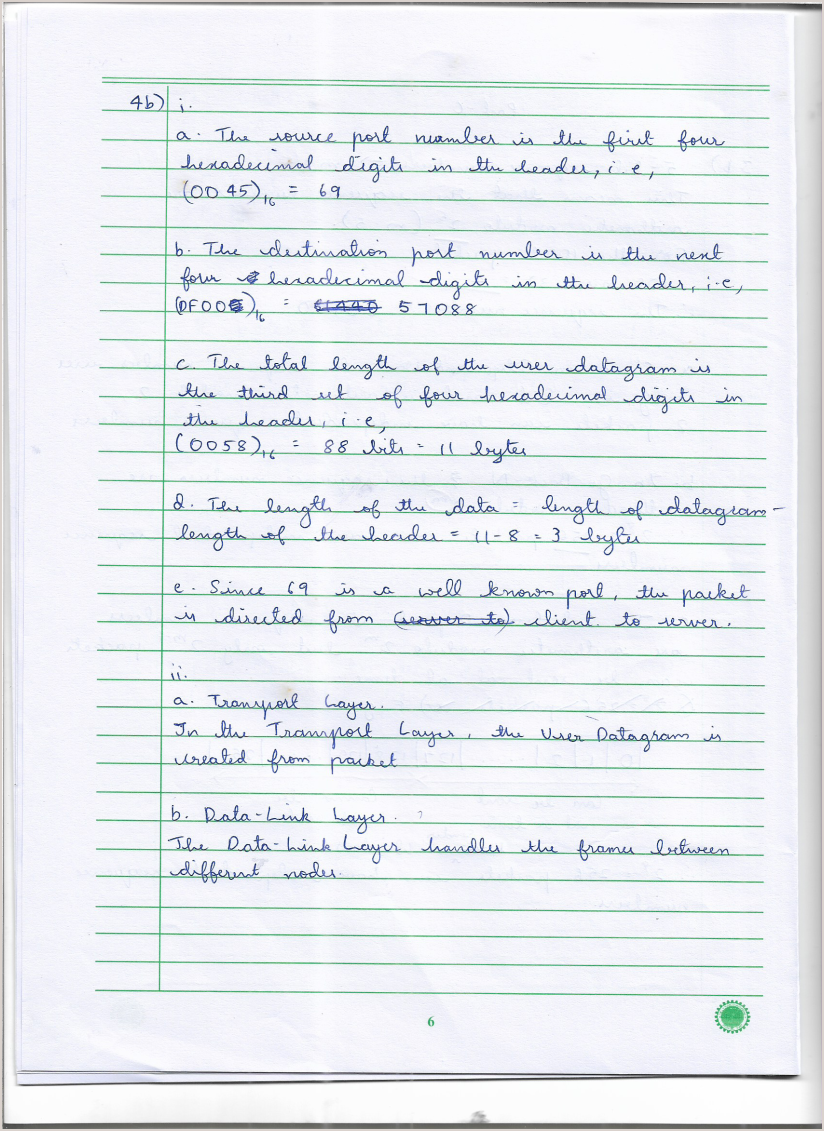 4b) i.
a. The source port number is the first four
hexadecimal digits in the header, i.e,
(0045)₁₆ = 69
b. The destination port number is the next
four hexadecimal digits in the header, i.e,
(DF00)₁₆ = 61440 57088
c. The total length of the user datagram is
the third set of four hexadecimal digits in
the header, i.e,
(0058)₁₆ = 88 bits = 11 bytes
d. The length of the data = length of datagram -
length of the header = 11-8 = 3 bytes
e. Since 69 is a well known port, the packet
is directed from (server to) client to server.
ii.
a. Transport Layer.
In the Transport Layer, the User Datagram is
created from packet
b. Data-Link Layer. ?
The Data-Link Layer handles the frames between
different nodes.
6